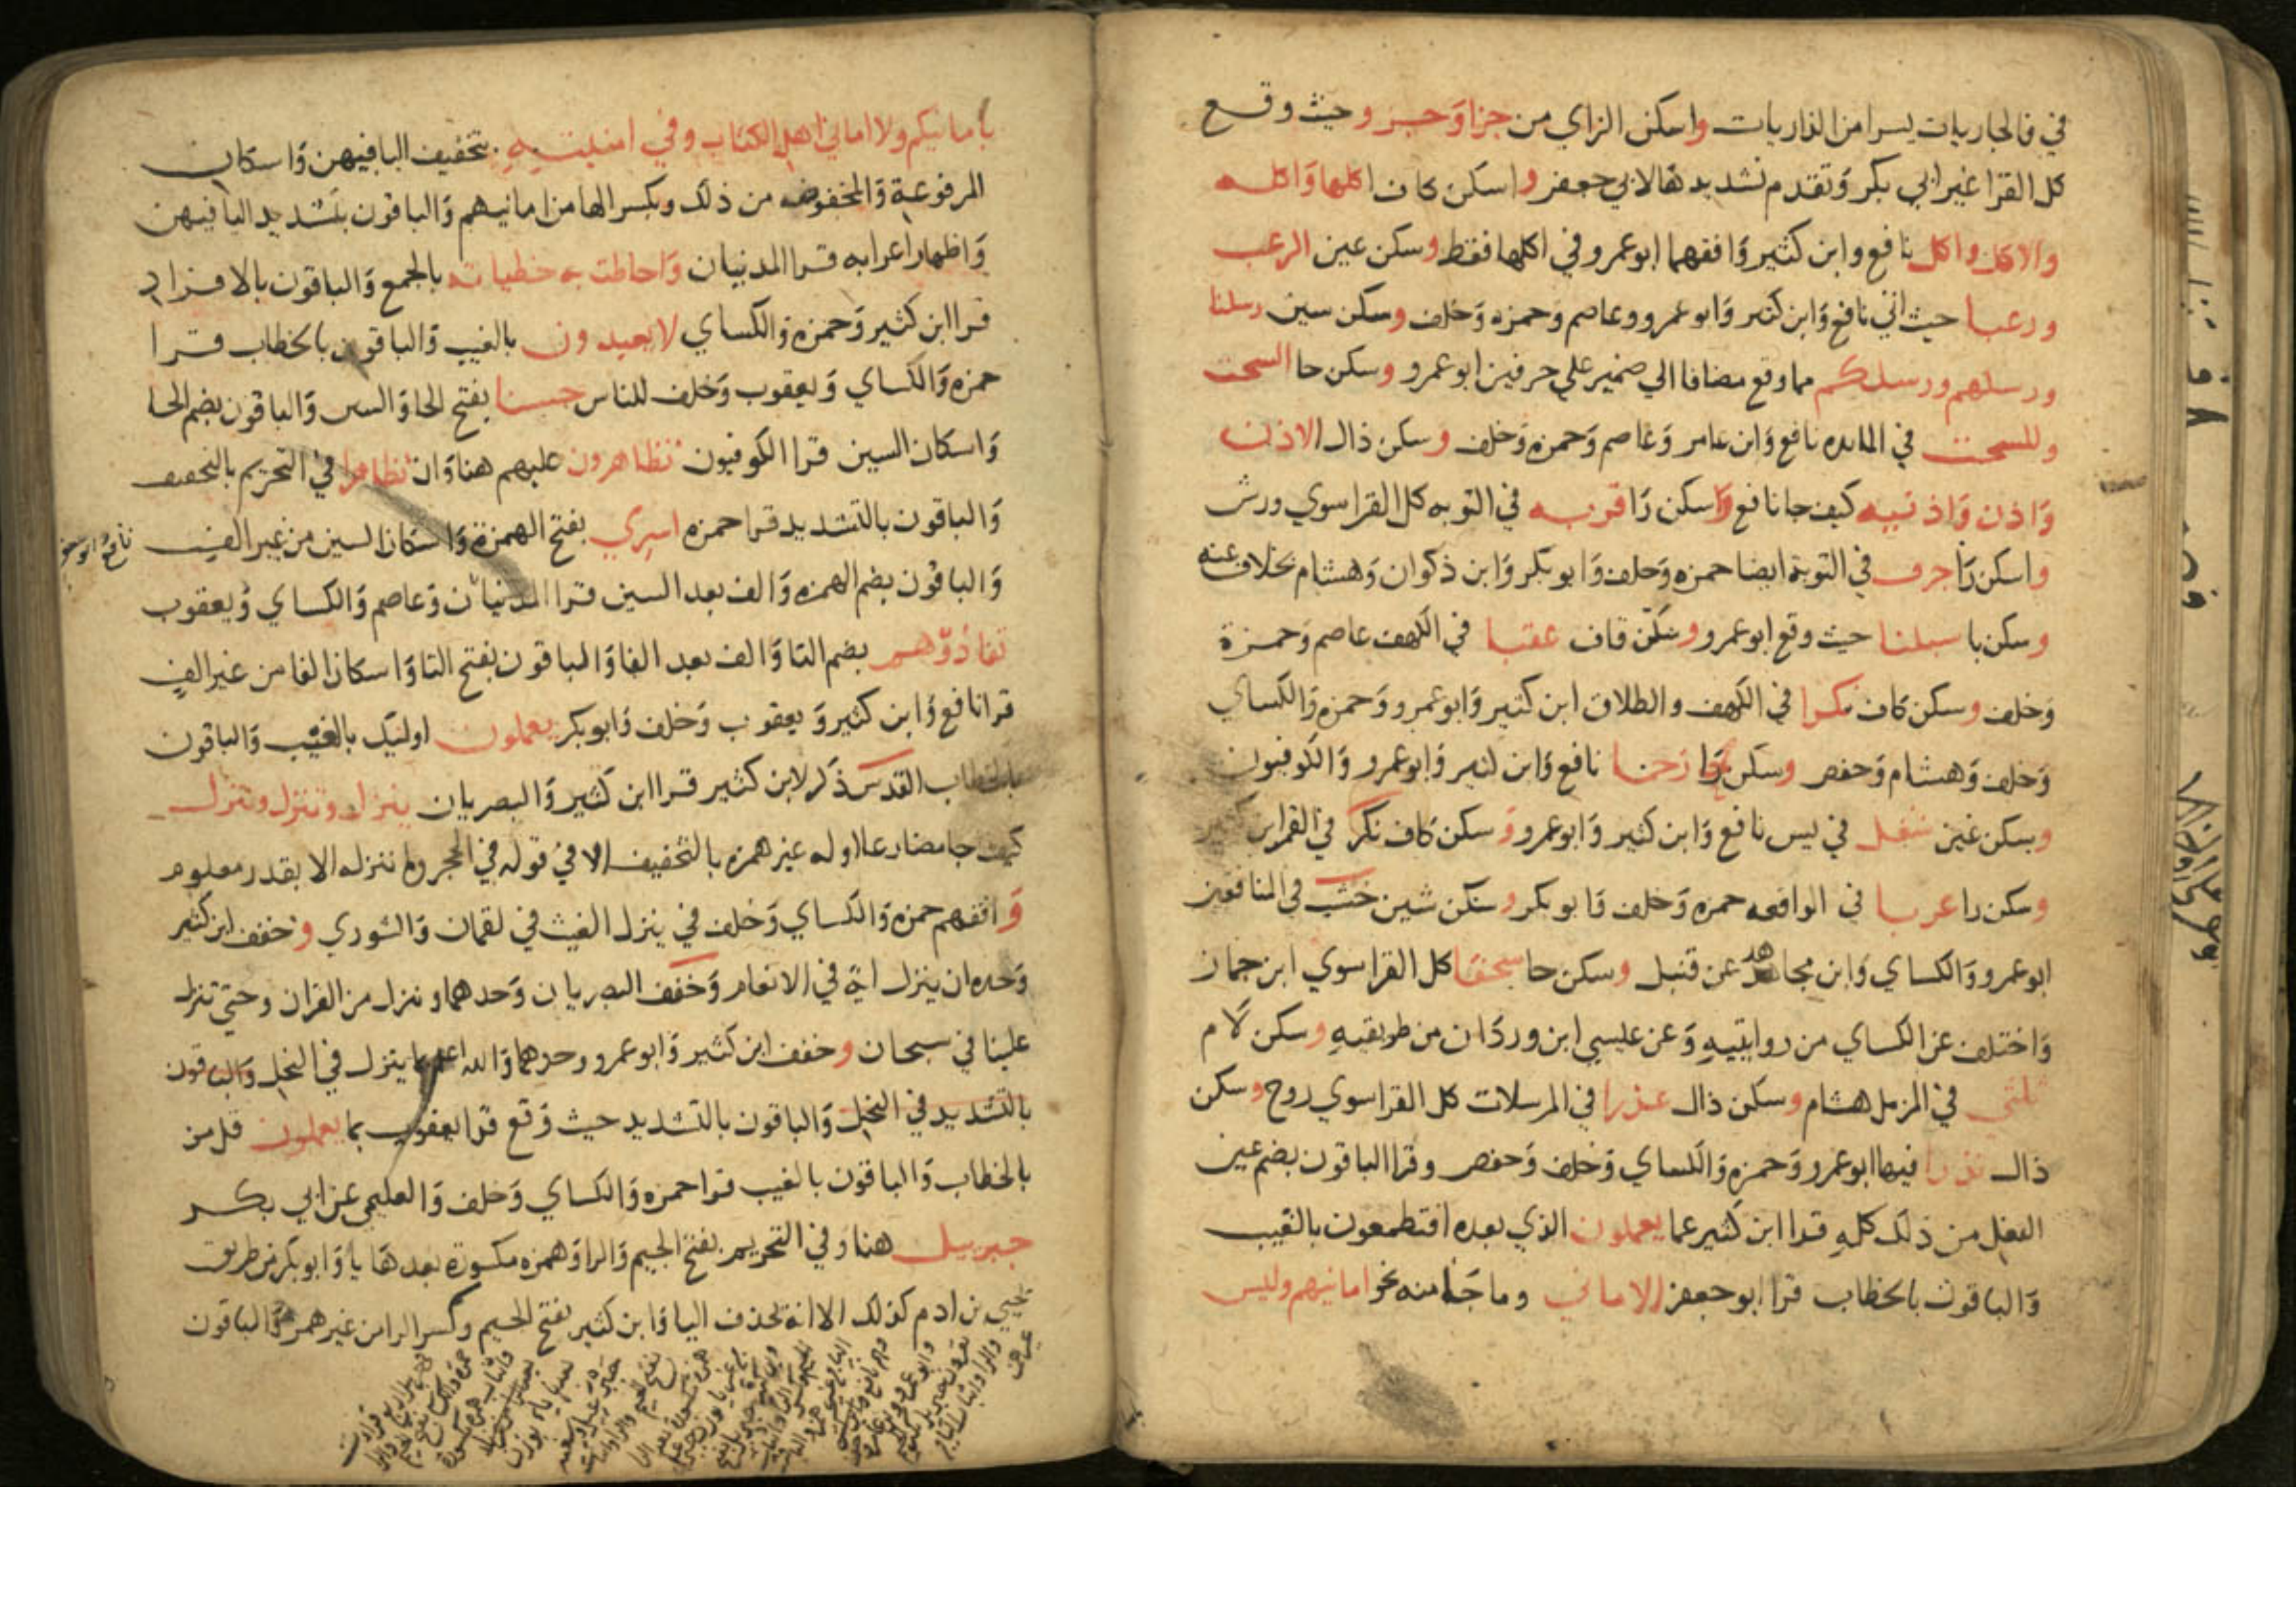 في فالجاريات يسرا من الذاريات واسكن الزاي من جزا وجزو حيث وقع
كل القرا غير ابي بكر وتقدم تشديدها لابي جعفر واسكن كاف اكلها واكله
والاكل واكل نافع وابن كثير وافقهما ابو عمرو في اكلها فقط وسكن عين الرعب
ورعبا حيث اتي نافع وابن كثير وابو عمرو وعاصم وحمزه وخلف وسكن سين رسلنا
ورسلهم ورسلكم مما وقع مضافا الي ضمير علي حرفين ابو عمرو وسكن حا السحت
وللسحت في المايده نافع وابن عامر وعاصم وحمزة وخلف وسكن ذال الاذن
واذن واذنيه كيف جا نافع واسكن را قربه في التوبه كل القرا سوي ورش
واسكن را جرف في التوبة ايضا حمزه وخلف وابو بكر وابن ذكوان وهشام بخلاف عنه
وسكن با سبلنا حيث وقع ابو عمرو وسكن قاف عقبا في الكهف عاصم وحمزة
وخلف وسكن كاف نكرا في الكهف والطلاق ابن كثير وابو عمرو وحمزه والكساي
وخلف وهشام وحفص وسكن حا رحما نافع وابن كثير وابو عمرو والكوفيون
وسكن غين شغل في يس نافع وابن كثير وابو عمرو وسكن كاف نكر في القمر ابن كثير
وسكن را عربا في الواقعه حمزه وخلف وابو بكر وسكن شين خشب في المنافقين
ابو عمرو والكساي وابن مجاهد عن قنبل وسكن حا سحقا كل القرا سوي ابن جماز
واختلف عن الكساي من روايتيه وعن عيسي ابن وردان من طريقيه وسكن لام
ثلثى في المزمل هشام وسكن ذال عذرا في المرسلات كل القرا سوي روح وسكن
ذال نذرا فيها ابو عمرو وحمزه والكساي وخلف وحفص وقرا الباقون بضم عين
الفعل من ذلك كله قرا ابن كثير عما يعملون الذي بعده افتطمعون بالغيب
والباقون بالخطاب قرا ابو جعفر الاماني وما جا منه نحو امانيهم وليس
بامانيكم ولا اماني اهل الكتاب وفي امنيته بتخفيف اليا فيهن واسكان
المرفوعة والمخفوضه من ذلك وبكسر الها من امانيهم والباقون بتشديد اليا فيهن
واظهار اعرابه قرا المدنيان واحاطت به خطياته بالجمع والباقون بالافراد
قرا ابن كثير وحمزه والكساي لا يعبدون بالغيب والباقون بالخطاب قرا
حمزه والكساي ويعقوب وخلف للناس حسنا بفتح الحا والسين والباقون بضم الحا
واسكان السين قرا الكوفيون تظاهرون عليهم هنا وان تظاهرا في التحريم بالتخفيف
والباقون بالتشديد قرا حمزه اسري بفتح الهمزة واسكان السين من غير الف
والباقون بضم الهمزه والف بعد السين قرا المدنيان وعاصم والكساي ويعقوب
تفادوهم بضم التا والف بعد الفا والباقون بفتح التا واسكان الفا من غير الف
قرا نافع وابن كثير ويعقوب وخلف وابو بكر يعملون اوليك بالغيب والباقون
بالخطاب القدس ذكر لابن كثير قرا ابن كثير والبصريان ينزل وتنزل وننزل
كيف جا مضارعا اوله غير همزه بالتخفيف الا في قوله في الحجر وما ننزله الا بقدر معلوم
وافقهم حمزه والكساي وخلف في ينزل الغيث في لقمان والشوري وخفف ابن كثير
وحده ان ينزل اية في الانعام وخفف البصريان وحدهما وننزل من القران وحتي تنزل
علينا في سبحان وخفف ابن كثير وابو عمرو وحدهما والله اعلم بما ينزل في النحل والباقون
بالتشديد في النحل والباقون بالتشديد حيث وقع قرا يعقوب بما يعملون قل من
بالخطاب والباقون بالغيب قرا حمزه والكساي وخلف والعليمي عن ابي بكر
جبريل هنا وفي التحريم بفتح الجيم والرا وهمزه مكسورة بعدها يا وابو بكر من طريق
يحيي بن ادم كذلك الا انه بحذف اليا وابن كثير بفتح الجيم وكسر الرا من غير همز والباقون